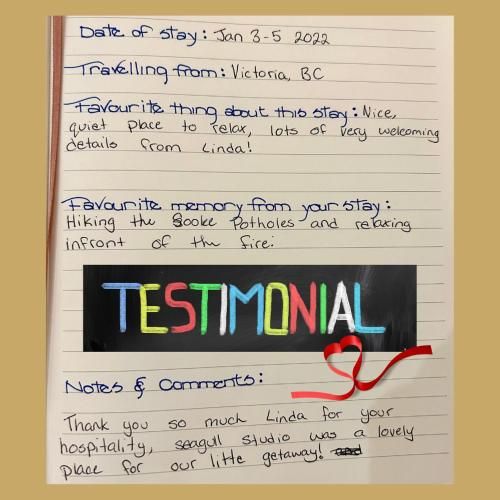 Date of stay: Jan 3-5 2022
Travelling from: Victoria, BC
Favourite thing about this stay: Nice,
quiet place to relax, lots of very welcoming
details from Linda!
Favourite memory from your stay:
Hiking the Sooke Potholes and relaxing
infront of the fire.
TESTIMONIAL
Notes & Comments:
Thank you so much Linda for your
hospitality, seagull studio was a lovely
place for our little getaway!